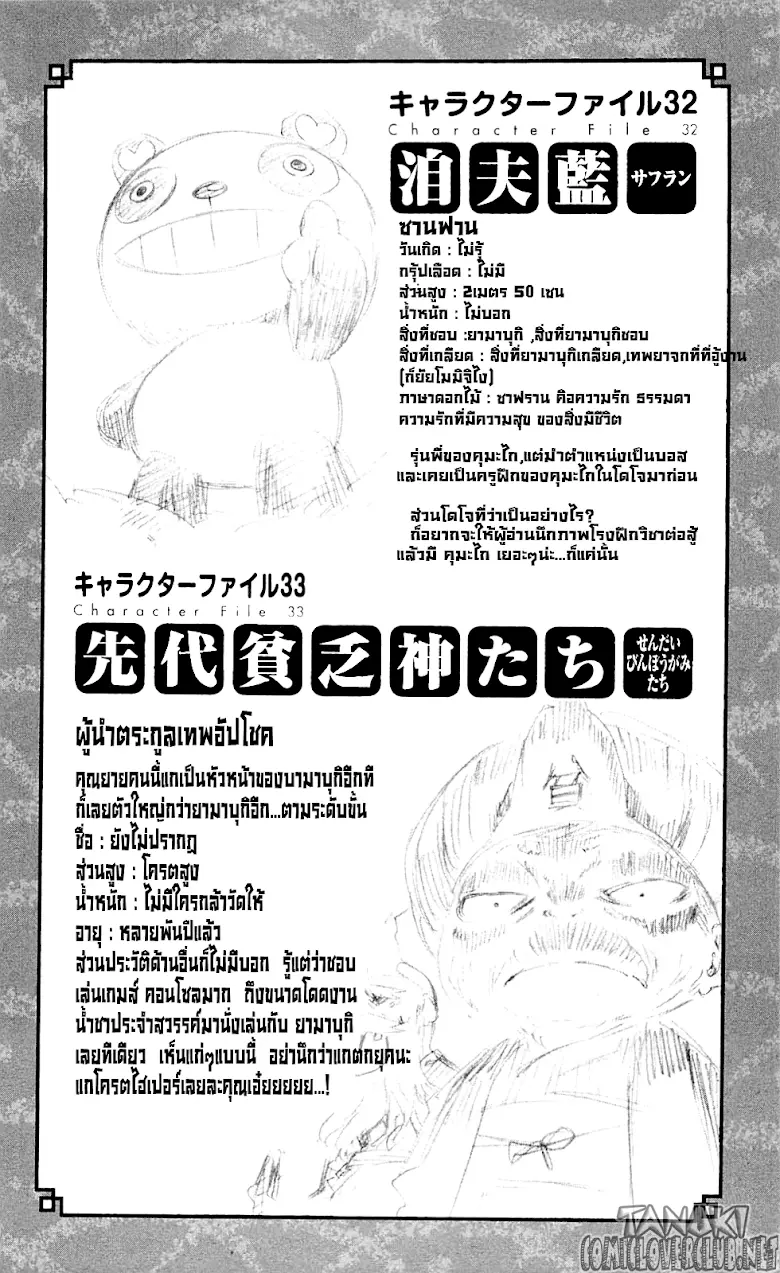 キャラクターファイル32
Character File 32
泊夫藍 サフラン
ซานฟาน
วันเกิด : ไม่รู้
กรุ๊ปเลือด : ไม่มี
ส่วนสูง : 2เมตร 50 เซน
น้ำหนัก : ไม่บอก
สิ่งที่ชอบ :ยามาบุกิ ,สิ่งที่ยามาบุกิชอบ
สิ่งที่เกลียด : สิ่งที่ยามาบุกิเกลียด,เทพยาจกที่ที่อู้งาน
(ก็ยัยโมมิจิไง)
ภาษาดอกไม้ : ซาฟราน คือความรัก ธรรมดา
ความรักที่มีความสุข ของสิ่งมีชีวิต
รุ่นพี่ของคุมะไก,แต่มาตำแหน่งเป็นบอส
และเคยเป็นครูฝึกของคุมะไกในโดโจมาก่อน
ส่วนโดโจที่ว่าเป็นอย่างไร?
ก็อยากจะให้ผู้อ่านนึกภาพโรงฝึกวิชาต่อสู้
แล้วมี คุมะไก เยอะๆน่ะ...ก็แค่นั้น
キャラクターファイル33
Character File 33
先代貧乏神たち せんだいびんぼうがみたち
ผู้นำตระกูลเทพอัปโชค
คุณยายคนนี้แกเป็นหัวหน้าของบามาบุกิอีกที
ก็เลยตัวใหญ่กว่ายามาบุกิอีก...ตามระดับขั้น
ชื่อ : ยังไม่ปรากฏ
ส่วนสูง : โครตสูง
น้ำหนัก : ไม่มีใครกล้าวัดให้
อายุ : หลายพันปีแล้ว
ส่วนประวัติด้านอื่นก็ไม่มีบอก รู้แต่ว่าชอบ
เล่นเกมส์ คอนโซลมาก ถึงขนาดโดดงาน
น้ำชาประจำสวรรค์มานั่งเล่นกับ ยามาบุกิ
เลยทีเดียว เห็นแก่ๆแบบนี้ อย่านึกว่าแกตกยุคนะ
แกโครตไฮเปอร์เลยละคุณเอ๋ยยยยย...!
貧
TANUKI
COMICLOVERCLUB.NET